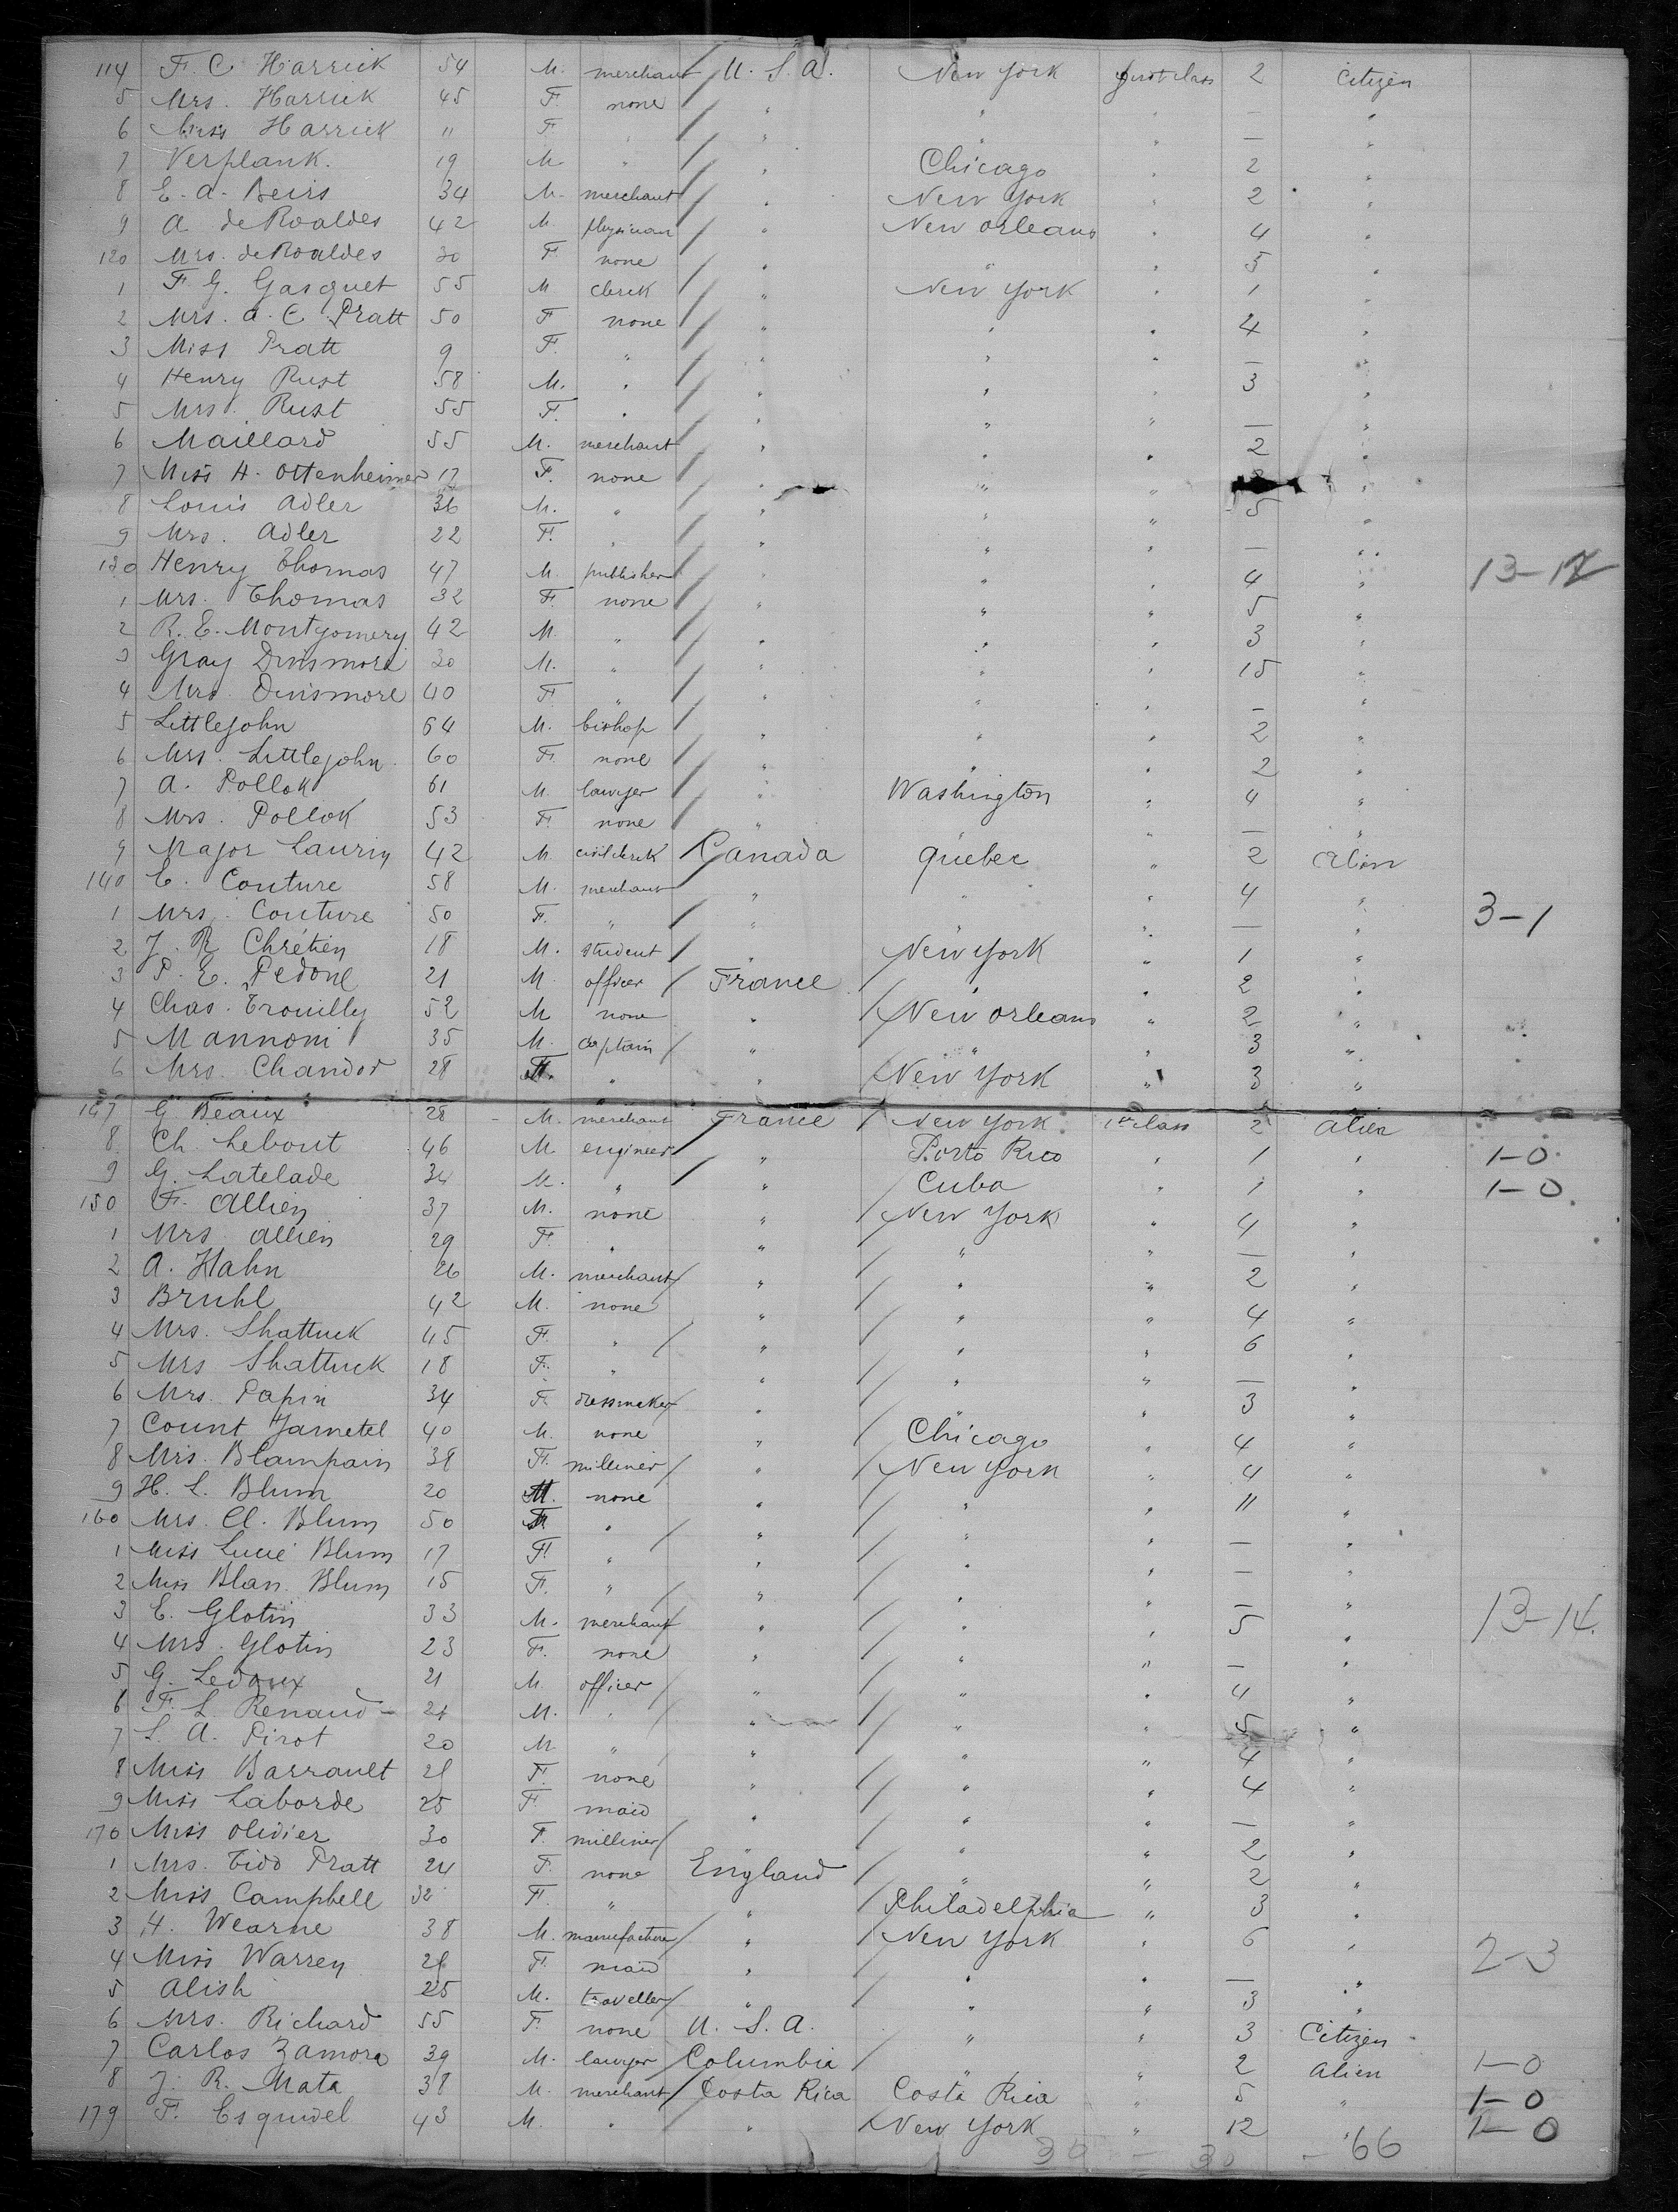 114 F. C Harrick 54 M. merchant U. S. A. New York first class 2 Citizen
5 Mrs. Harrick 45 F. none " " " — "
6 Miss Harrick 11 F " " " " — "
7 Verplank. 19 M. " " Chicago " 2 "
8 E. A. Beirs 34 M. merchant " New York " 2 "
9 A de Roaldes 42 M physician " New Orleans " 4 "
120 Mrs. de Roaldes 30 F. none " " " 5 "
1 F. G. Gasquet 55 M clerk " New York " 1 "
2 Mrs. A. C Pratt 50 F none " " " 4 "
3 Miss Pratt 9 F. " " " " — "
4 Henry Rust 58 M. " " " " 3 "
5 Mrs. Rust 55 F. " " " " — "
6 Maillard 55 M. merchant " " " 2 "
7 Miss H. Ottenheimer 17 F. none " " " "
8 Louis Adler 36 M. " " " " 5 "
9 Mrs. Adler 22 F. " " " " — "
130 Henry Thomas 47 M publisher " " " 4 " 13-12
1 Mrs. Thomas 32 F. none " " " 5 "
2 R. E. Montgomery 42 M. " " " " 3 "
3 Gray Dinsmore 30 M. " " " " 15 "
4 Mrs. Dinsmore 40 F " " " " — "
5 Littlejohn 64 M. bishop " " " 2 "
6 Mrs. Littlejohn 60 F. none " " " 2 "
7 A. Pollok 61 M. lawyer " Washington " 4 "
8 Mrs. Pollok 53 F. none " " " — "
9 Major Laurin 42 M. civil clerk Canada Quebec " 2 Alien
140 E. Couture 58 M. merchant " " " 4 "
1 Mrs. Couture 50 F. " " " " — " 3-1
2 J. R Chrétien 18 M. student " New York " 1 "
3 P. E. Pedone 21 M. officer France " " 2 "
4 Chas. Trouilly 52 M none " New Orleans " 2 "
5 Mannoni 35 M. captain " " " 3 "
6 Mrs. Chandor 28 F. " " New York " 3 "
147 G Beaux 28 M. merchant France New York 1st class 2 Alien
8 Ch. Lebout 46 M. engineer " Porto Rico " 1 " 1-0
9 G. Latelade 34 M. " " Cuba " 1 " 1-0
150 F. Allien 37 M. none " New York " 4 "
1 Mrs Allien 29 F. " " " " — "
2 A. Hahn 26 M. merchant " " " 2 "
3 Bruhl 42 M. none " " " 4 "
4 Mrs. Shattuck 45 F. " " " " 6 "
5 Mrs Shattuck 18 F. " " " " — "
6 Mrs. Papin 34 F. dressmaker " " " 3 "
7 Count Jametel 40 M. none " Chicago " 4 "
8 Mrs. Blampain 38 F. milliner " New York " 4 "
9 H. L. Blum 20 M. none " " " 11 "
160 Mrs. Cl. Blum 50 F " " " " — "
1 Miss Lucie Blum 17 F. " " " " — "
2 Miss Blan. Blum 15 F. " " " " — "
3 E. Glotin 33 M. merchant " " " 5 " 13-14.
4 Mrs. Glotin 23 F. none " " " — "
5 G. Ledoux 21 M. officer " " " 4 "
6 F. L. Renaud 24 M. " " " " 5 "
7 L. A. Pirot 20 M " " " " 4 "
8 Miss Barrault 28 F. none " " " 4 "
9 Miss Laborde 25 F. maid " " " — "
170 Miss Olivier 30 F. milliner " " " 2 "
1 Mrs. Tido Pratt 24 F. none England " " 2 "
2 Miss Campbell 32 F. " " Philadelphia " 3 "
3 H. Wearne 38 M. manufacturer " New York " 6 " 2-3
4 Miss Warren 28 F. maid " " " — "
5 Alish 25 M. traveller " " " 3 "
6 Mrs. Richard 55 F. none U. S. A. " " 3 Citizen
7 Carlos Zamora 39 M. lawyer Columbia " " 2 Alien 1-0
8 J. R. Mata 38 M. merchant Costa Rica Costa Rica " 5 " 1-0
179 F. Esquivel 43 M. " " New York " 12 " 1-0
36 - 30 - 66